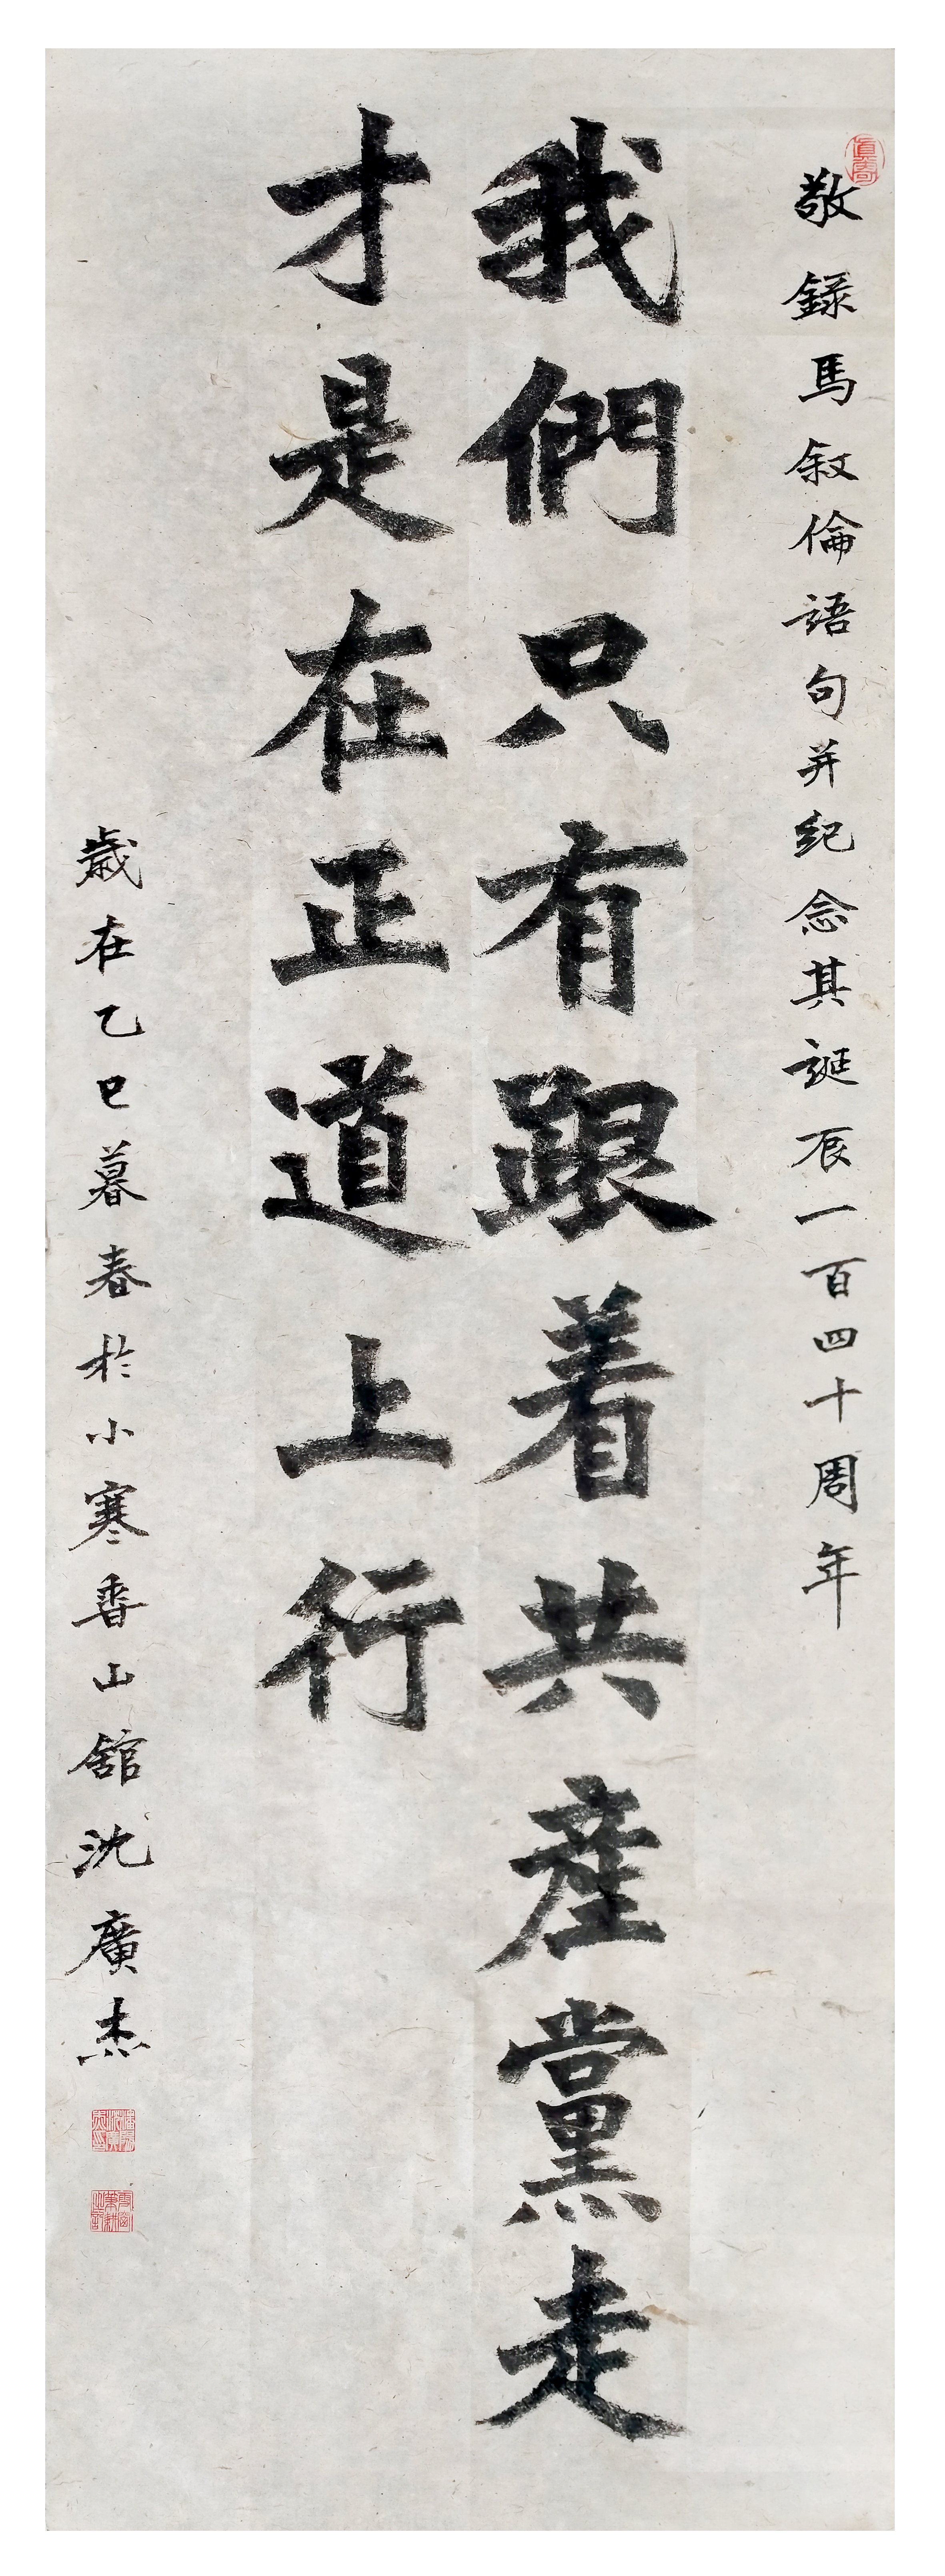 敬錄馬敘倫語句并紀念其誕辰一百四十周年
我們只有跟着共產黨走
才是在正道上行
歲在乙巳暮春於小寒香山舘沈廣杰